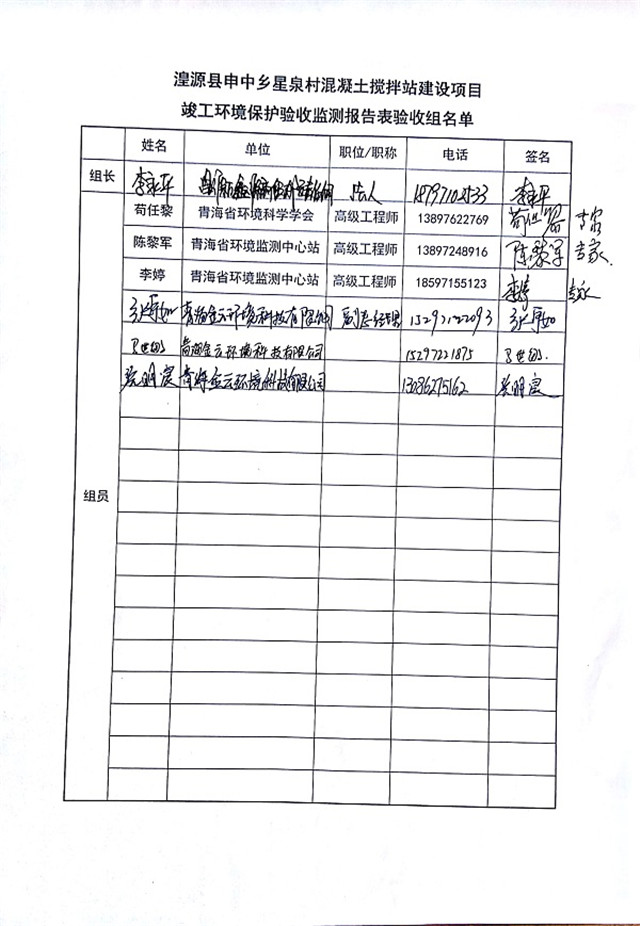 湟源县申中乡星泉村混凝土搅拌站建设项目
竣工环境保护验收监测报告表验收组名单
姓名 单位 职位/职称 电话 签名
组长 李永平 法人 李永平
苟任黎 青海省环境科学学会 高级工程师 13897622769 苟任黎 专家
陈黎军 青海省环境监测中心站 高级工程师 13897248916 陈黎军 专家
李婷 青海省环境监测中心站 高级工程师 18597155123 李婷 专家
青海金云环境科技有限公司 副总经理 15297122093
青海金云环境科技有限公司 15297221875
张明宸 青海金云环境科技有限公司 13086275162 张明宸
组员